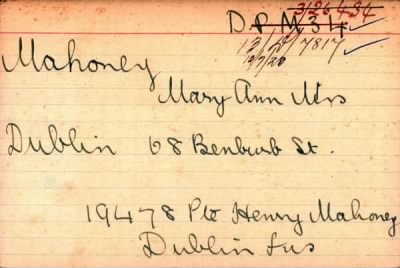 D.P.M 34
13/D/7817
Mahoney
Mary Ann Mrs
Dublin 68 Benburb St.
19478 Pte Henry Mahoney
Dublin Fus